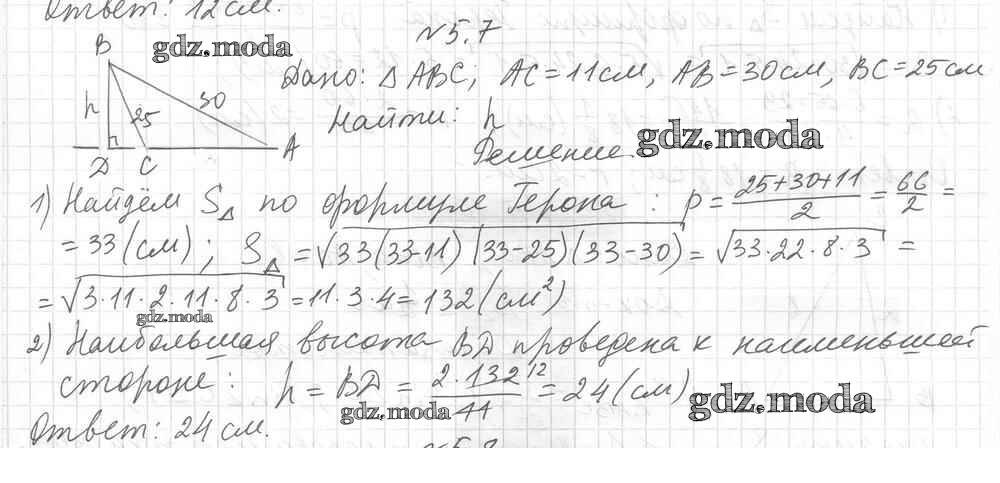 Ответ: 12 см.
№5.7
gdz.moda
Дано: △ABC; AC = 11 см, AB = 30 см, BC = 25 см
B
h
25
30
A
D
C
Найти: h
gdz.moda
Решение.
1) Найдём S△ по формуле Герона: p = (25+30+11)/2 = 66/2 =
= 33 (см); S△ = √(33(33-11)(33-25)(33-30)) = √(33·22·8·3) =
= √(3·11·2·11·8·3) = 11·3·4 = 132 (см²)
gdz.moda
2) Наибольшая высота BD проведена к наименьшей
стороне: h = BD = (2·132 12)/11 = 24 (см)
gdz.moda
gdz.moda
Ответ: 24 см.